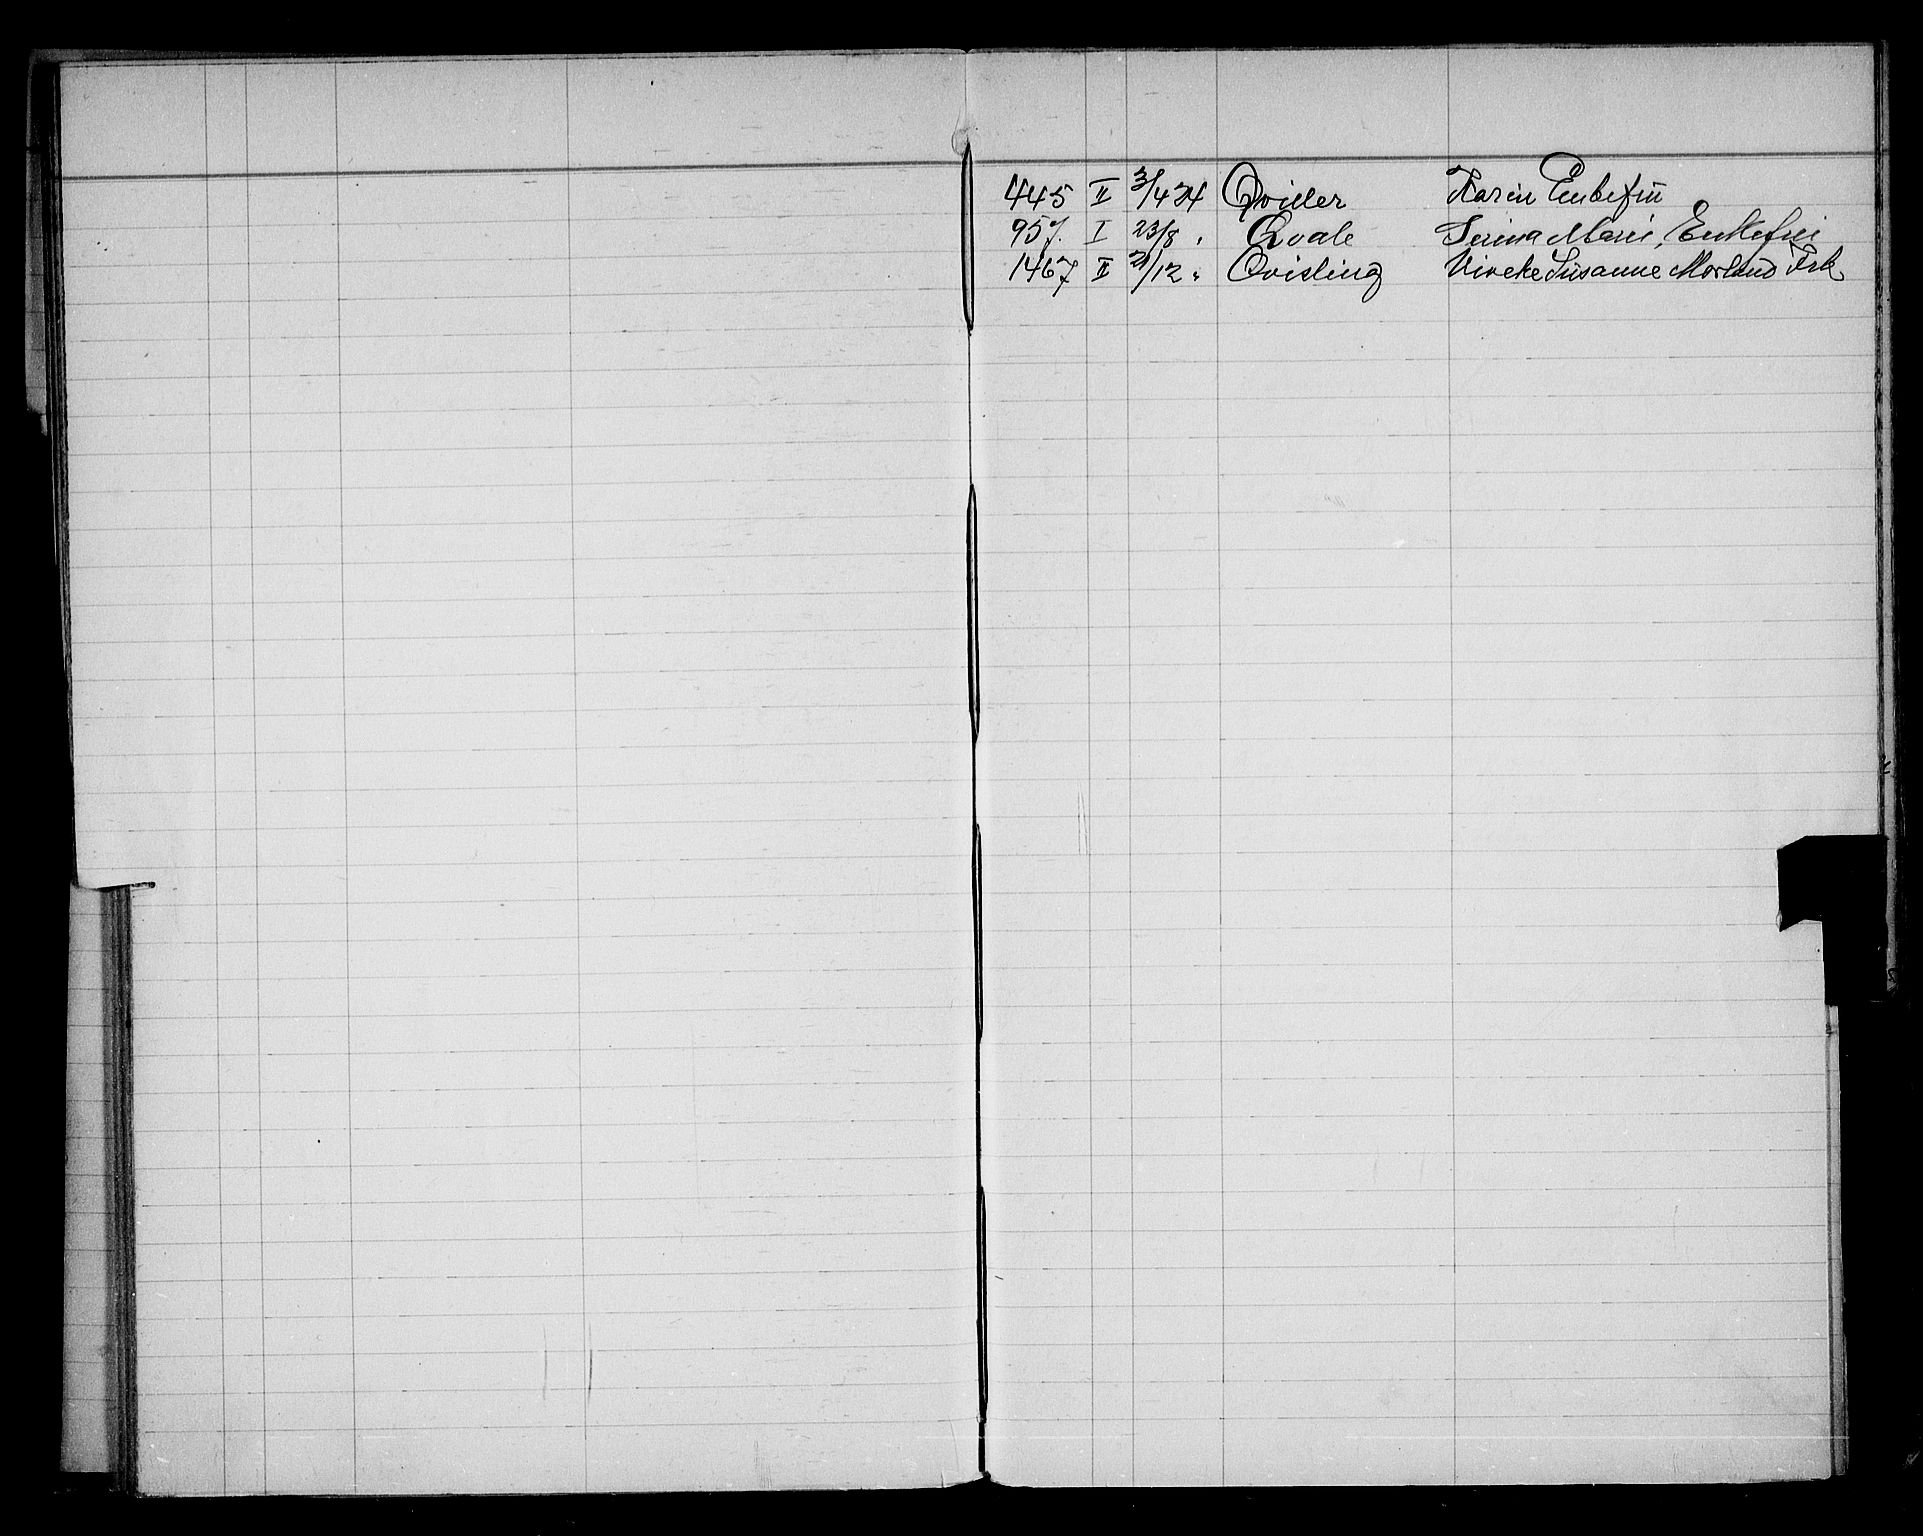 445 II 3/4 34 Qviller Karin Enkefru
957. I 23/8 " Qvale Serina Marie, Enkefru
1467 II 21/12 " Qvisling Viveke Susanne Morland Frk